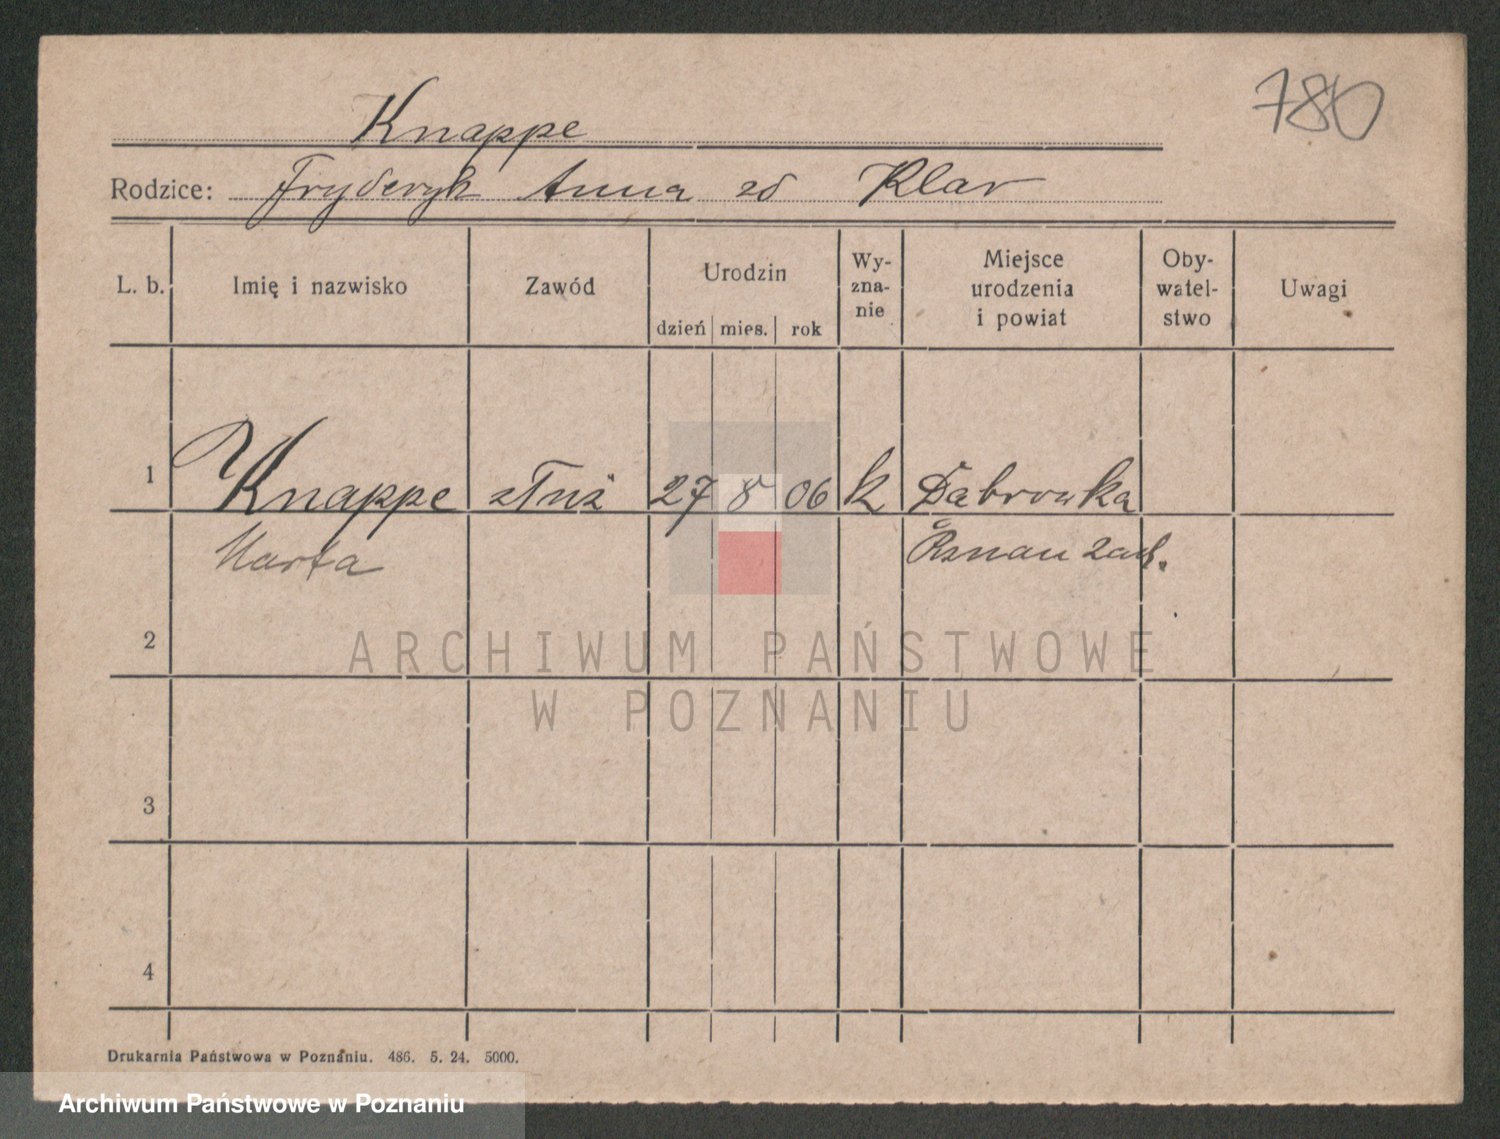 780
Knappe
Rodzice: Fryderyk Anna zd Klar
L. b. Imię i nazwisko Zawód Urodzin dzień mies. rok Wy-zna-nie Miejsce urodzenia i powiat Oby-watel-stwo Uwagi
1 Knappe służ 27 8 06 k Dąbrowka
Marta Poznań Zach.
2
ARCHIWUM PAŃSTWOWE
W POZNANIU
3
4
Drukarnia Państwowa w Poznaniu. 486. 5. 24. 5000.
Archiwum Państwowe w Poznaniu